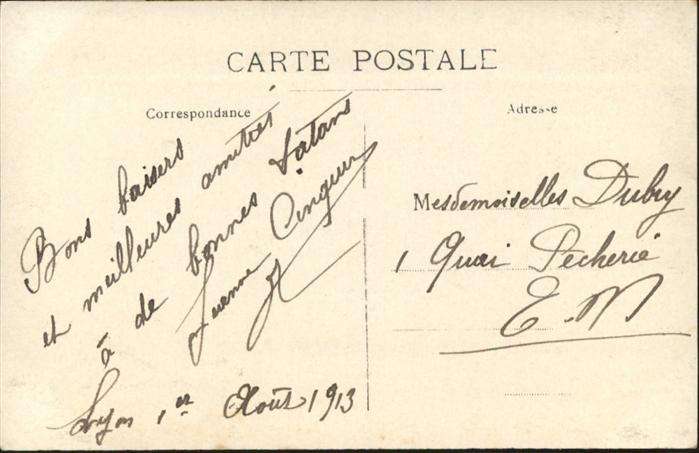 CARTE POSTALE
Correspondance
Bons baisers
et meilleures amitiés
à de bonnes Satans
Lyon 1er Août 1913
Adresse
Mesdemoiselles Dubry
1 Quai Pècherie
E.M